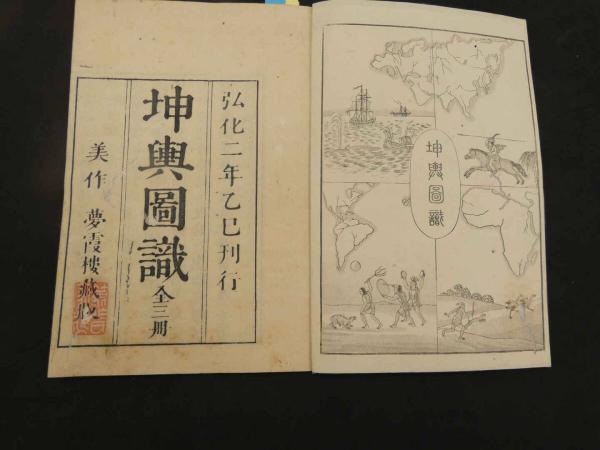 弘化二年乙巳刊行
坤輿圖識 全三册
美作 夢霞樓藏版
坤輿圖識